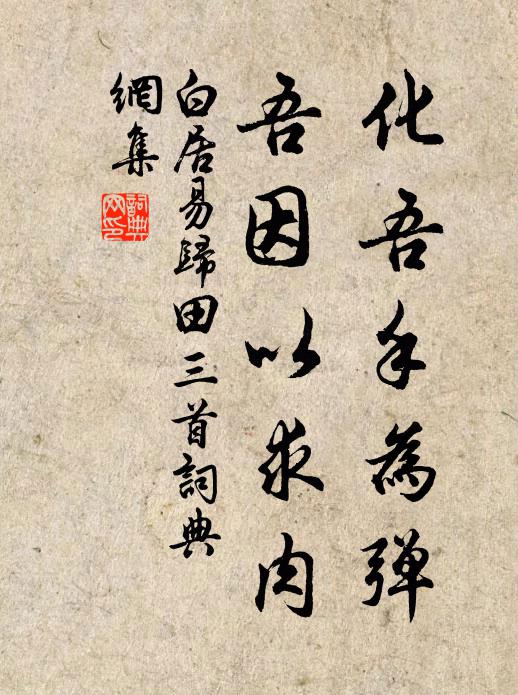 化吾手為弹
吾因以求肉
白居易歸田三首詞典
網集
詞典
网印